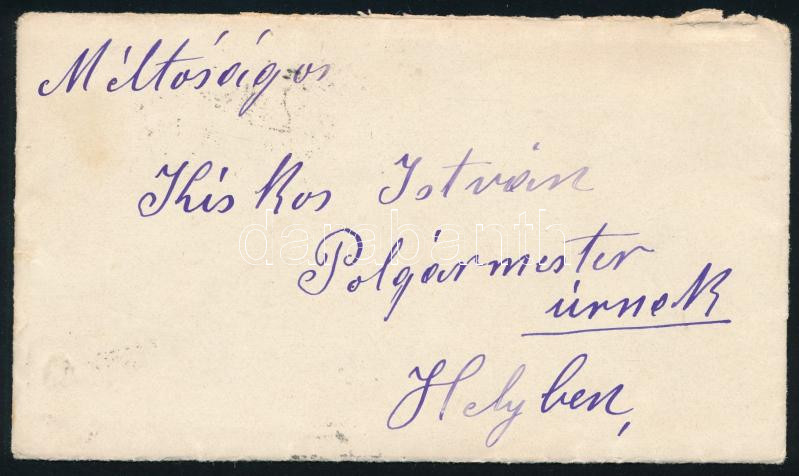 Méltóságos
Kis Kos István
Polgármester
úrnek
Helyben,
darabanth